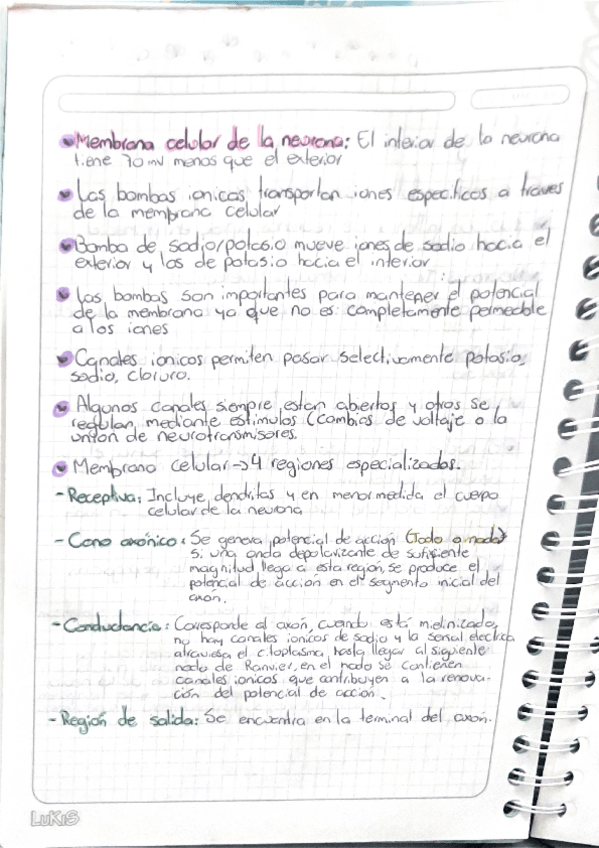 Membrana celular de la neurona: El interior de la neurona
tiene 70 mv menos que el exterior
Las bombas ionicas transportan iones especificos a traves
de la membrana celular
Bomba de sodio/potasio mueve iones de sodio hacia el
exterior y los de potasio hacia el interior
Las bombas son importantes para mantener el potencial
de la membrana ya que no es completamente permeable
a los iones
Canales ionicos permiten pasar selectivamente potasio,
sodio, cloruro.
Algunos canales siempre estan abiertos y otros se
regulan mediante estimulos (cambios de voltaje o la
union de neurotransmisores.
Membrana celular → 4 regiones especializadas.
- Receptiva: Incluye dendritas y en menor medida el cuerpo
celular de la neurona
- Cono axónico: Se genera potencial de acción (Todo o nada)
Si una onda depolarizante de suficiente
magnitud llega a esta región, se produce el
potencial de acción en el segmento inicial del
axón.
- Conductancia: Corresponde al axón, cuando está mielinizado,
no hay canales ionicos de sodio y la señal electrica
atraviesa el citoplasma hasta llegar al siguiente
nodo de Ranvier, en el nodo se contienen
canales ionicos que contribuyen a la renova-
ción del potencial de acción.
- Región de salida: Se encuentra en la terminal del axón.
LUKIS